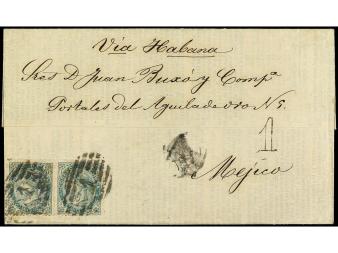 Vía Habana
Sres D. Juan Buxó y Compª
Portales del Aguila de oro Nº
1
Mejico